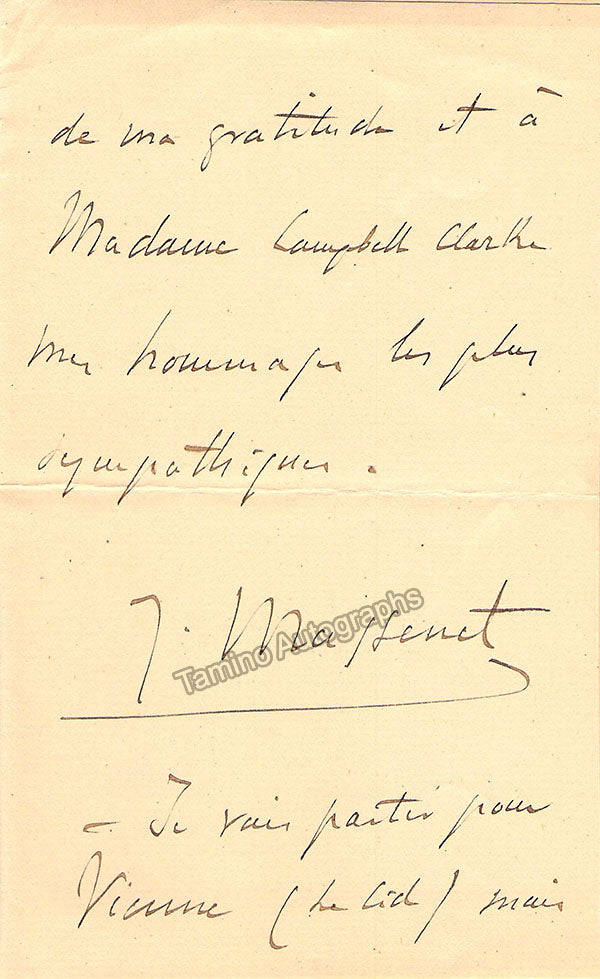 de ma gratitude et à
Madame Campbell Clarke
mes hommages les plus
sympathiques.
J. Massenet
Tamino Autographs
– Je vais partir pour
Vienne (Le Cid) mais